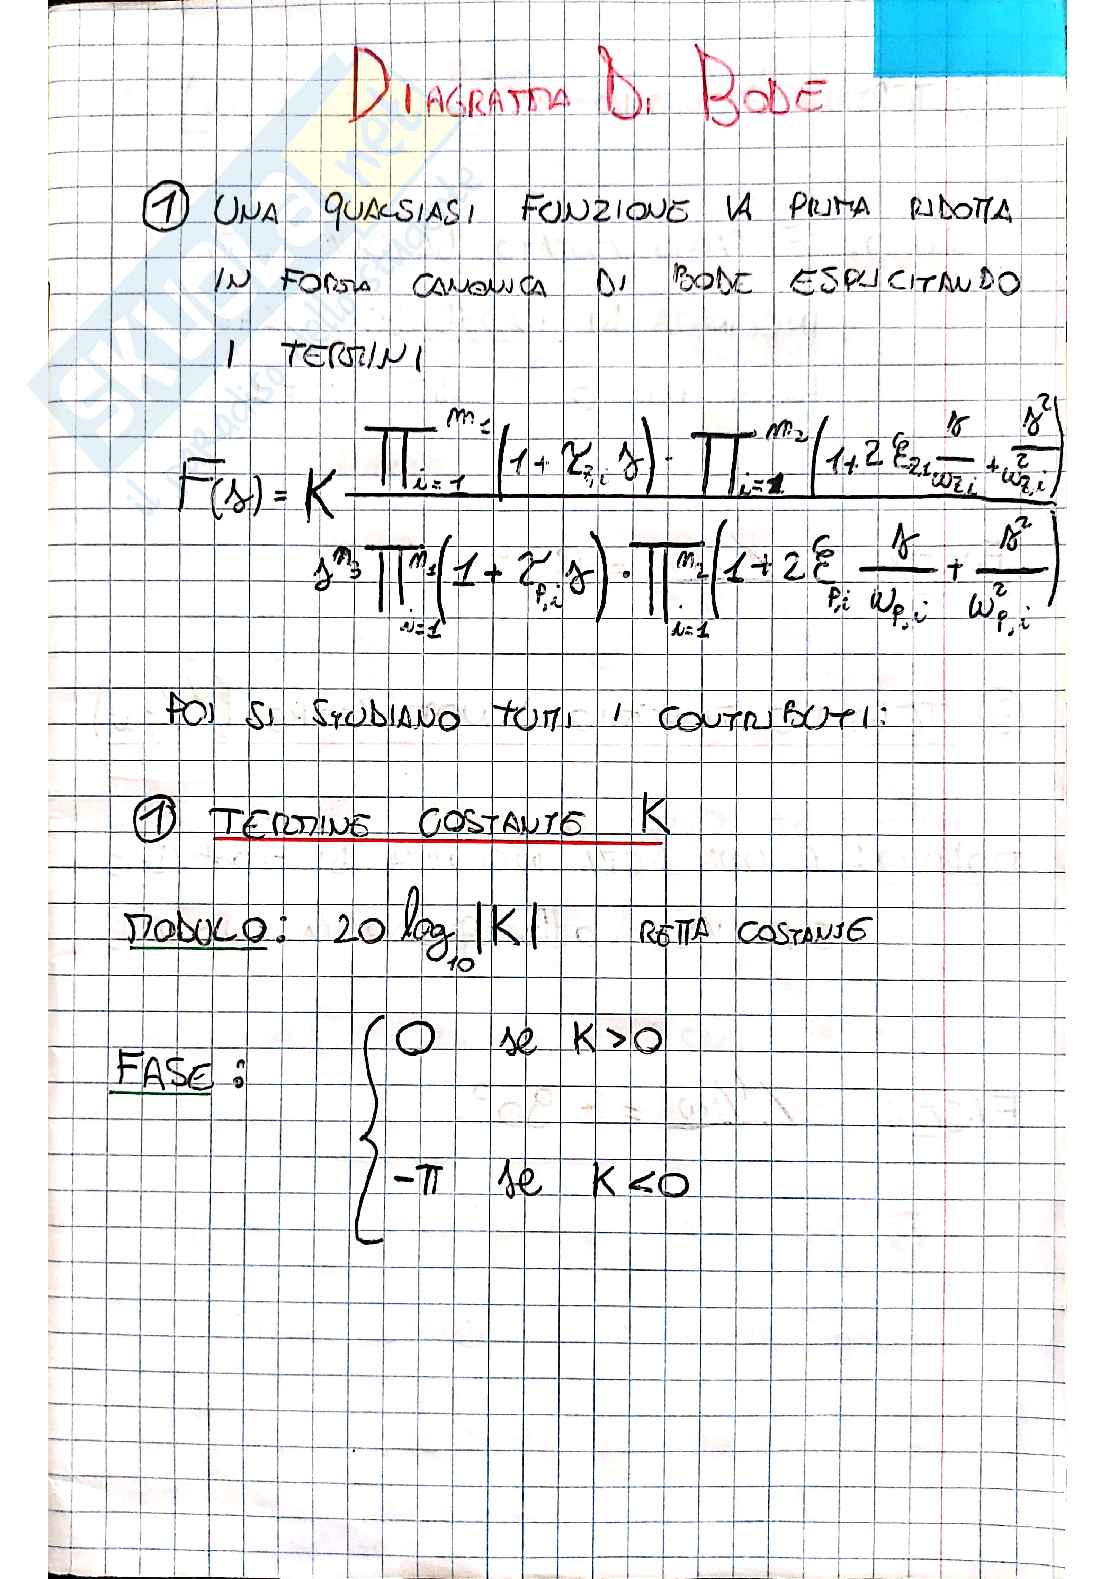 DIAGRAMMA DI BODE
① UNA QUALSIASI FUNZIONE VA PRIMA RIDOTTA
IN FORMA CANONICA DI BODE ESPLICITANDO
I TERMINI
F(s) = K \frac{\prod_{i=1}^{m_1} (1 + τ_{z,i} s) · \prod_{i=1}^{m_2} (1 + 2 ξ_{z,i} \frac{s}{ω_{z,i}} + \frac{s^2}{ω_{z,i}^2})}{s^{n_3} \prod_{i=1}^{n_1} (1 + τ_{p,i} s) · \prod_{i=1}^{n_2} (1 + 2 ξ_{p,i} \frac{s}{ω_{p,i}} + \frac{s^2}{ω_{p,i}^2})}
POI SI STUDIANO TUTTI I CONTRIBUTI:
① TERMINE COSTANTE K
MODULO: 20 log_{10} |K| RETTA COSTANTE
FASE: { 0 se K > 0
-π se K < 0
SKUOLA.net
il paradiso dello studente